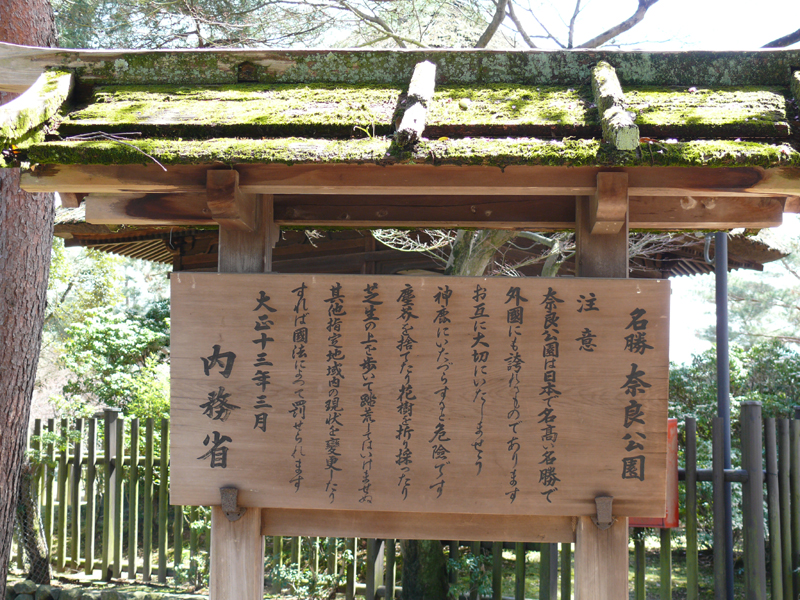 名勝 奈良公園
注意
奈良公園は日本で名高い名勝で
外國にも誇れるものであります
お互に大切にいたしませう
神鹿にいたづらすると危險です
塵芥を捨てたり花樹を折り採ったり
芝生の上を歩いて踏荒してはいけません
其他指定地域内の現状を變更したり
すれば國法によって罰せられます
大正十三年三月
内務省